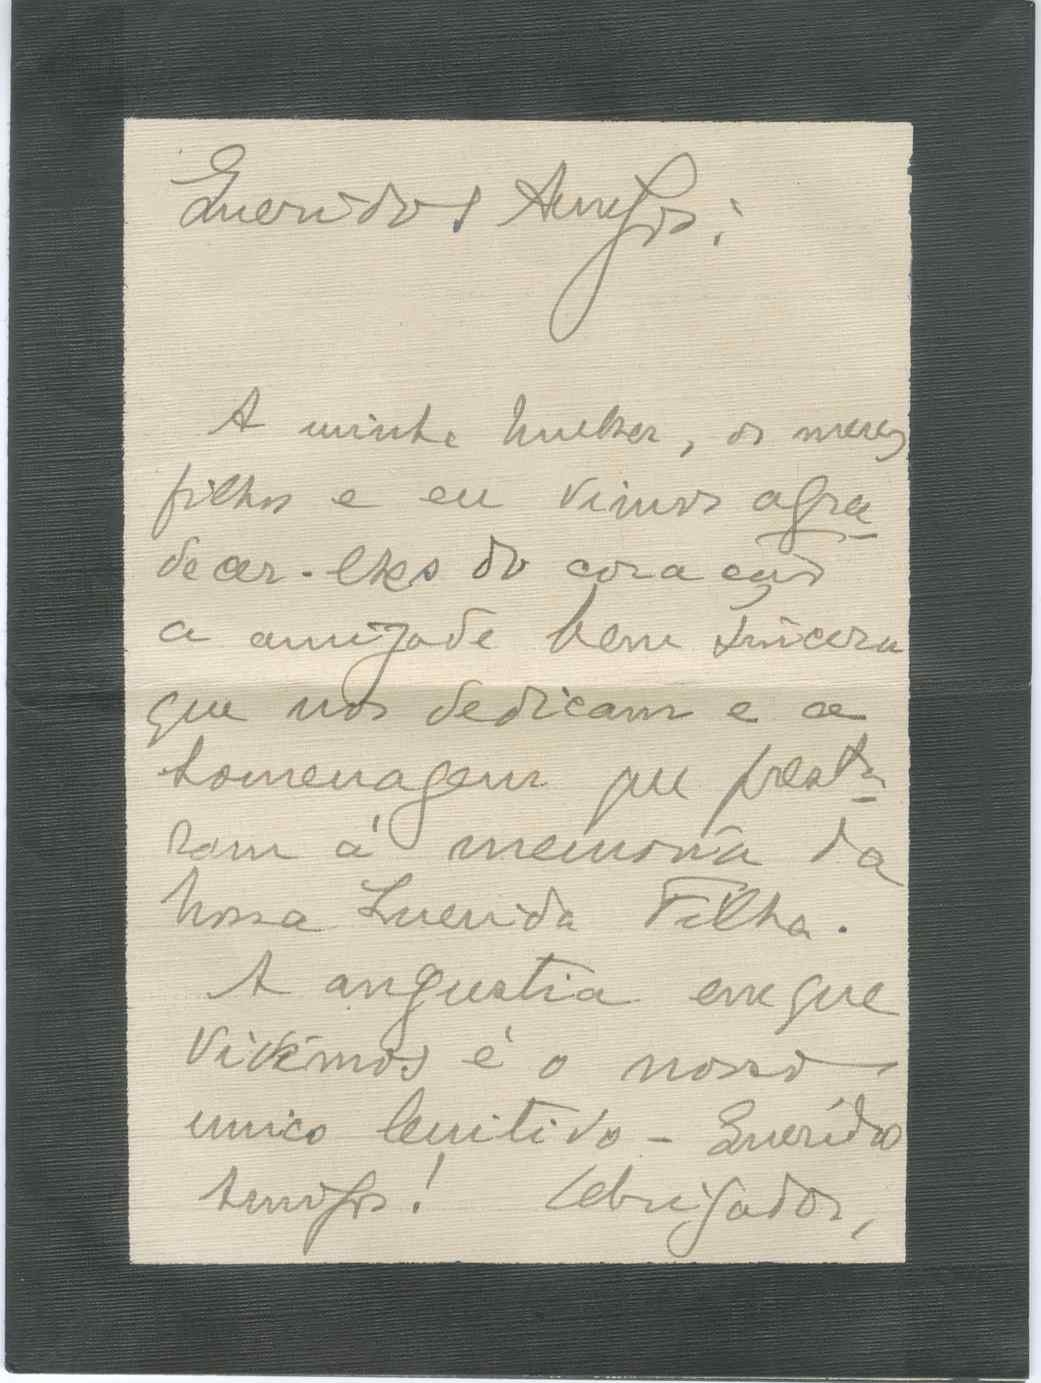 Queridos Amigos:
A minha mulher, os meus
filhos e eu vimos agra-
decer-lhes do coração
a amizade bem sincera
que nos dedicam e a
homenagem que presta-
ram á memória da
nossa Querida Filha.
A angustia em que
vivêmos é o nosso
unico lenitivo - Queridos
Amigos! Obrigados,